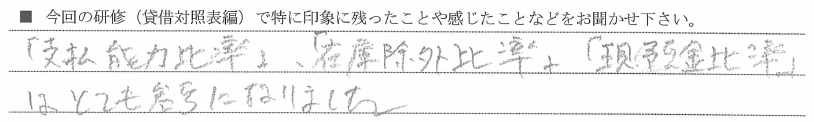 ■ 今回の研修（貸借対照表編）で特に印象に残ったことや感じたことなどをお聞かせ下さい。
「支払能力比率」、「在庫除外比率」、「現預金比率」
はとても参考になりました